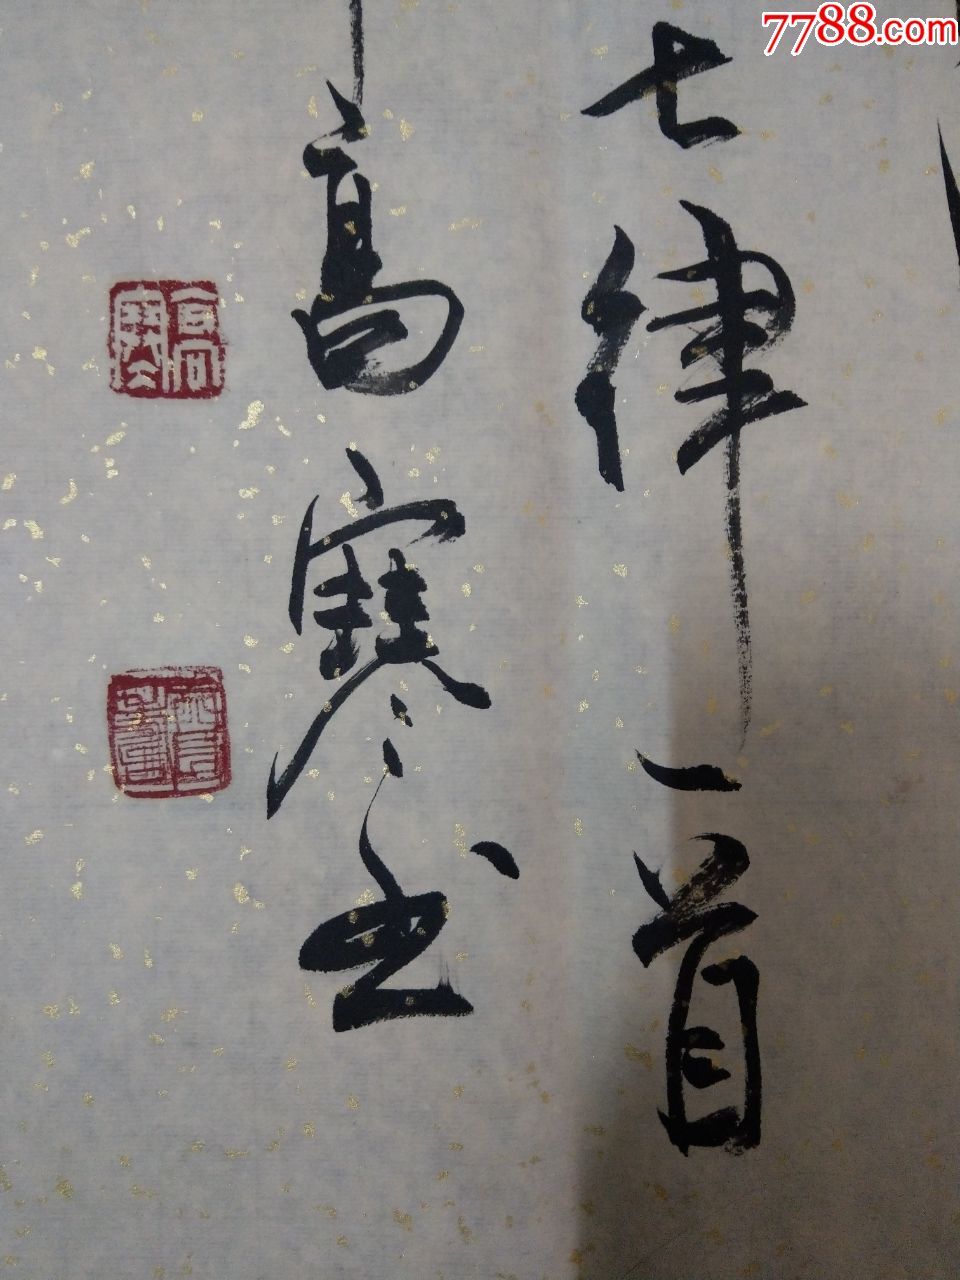 7788.com
七律一首
高寒书
高寒